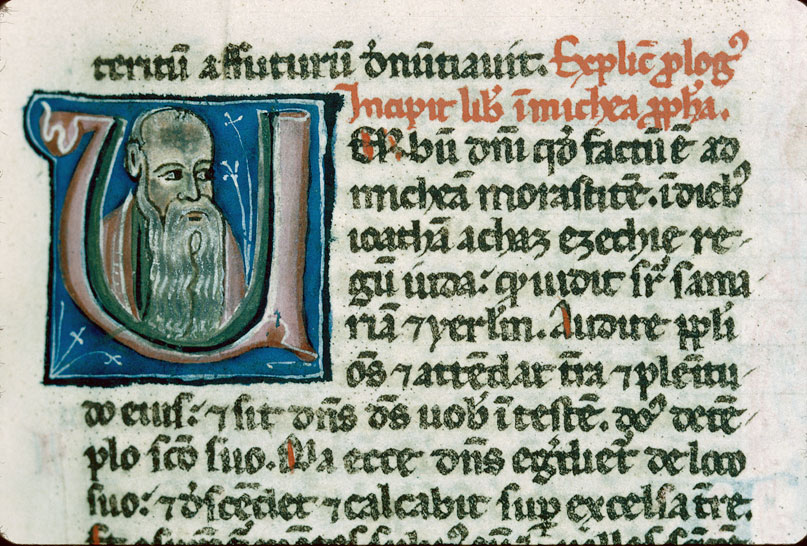 teritū affuturū d̄nūtiauit. Explic̄ p̄logꝰ
Incipit lib̄ ī michea ꝓph̄a.
UERbū dn̄i qd̄ factū ē ad
micheā morastitē. ī diebꝫ
ioathā achaz ezechie re-
gū iuda: qd̄ uidit suꝑ sama
riā ⁊ ierl̄m. Audite ppl̄i
om̄s ⁊ attēdat t̄ra ⁊ plēitu-
do eius: ⁊ sit dn̄s ds̄ uob̄ ī testē. dn̄s de tē-
plo sc̄o suo. Quia ecce dn̄s egrediet̄ de loco
suo: ⁊ desc̄endet ⁊ calcabit suꝑ excelsa t̄re.